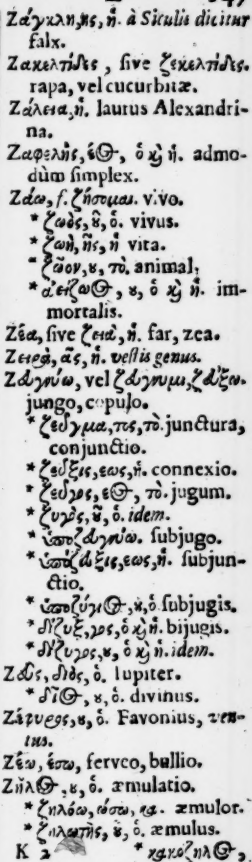 Ζάγκλη, ης, ἡ. à Siculis dicitur
falx.
Ζακελτίδες, sive ζεκελτίδες.
rapa, vel cucurbitæ.
Ζάλεια, ἡ. laurus Alexandri-
na.
Ζαφελὴς, έ⊙, ὁ ϗ ἡ. admo-
dùm simplex.
Ζάω, f. ζήσομαι. vivo.
* ζωὸς, ȣ͂, ὁ. vivus.
* ζωὴ, ῆς, ἡ vita.
* ζῶον, ȣ, τὸ. animal,
* ἀείζω⊙, ȣ, ὁ ϗ ἡ. im-
mortalis.
Ζέα, sive ζειὰ, ἡ. far, zea.
Ζειρὰ, ᾶς, ἡ. vestis genus.
Ζευγνύω, vel ζεύγνυμι, ζεύξω.
jungo, copulo.
* ζεῦγμα, τος, τὸ. junctura,
conjunctio.
* ζεῦξις, εως, ἡ. connexio.
* ζεῦγος, ε⊙, τὸ. jugum.
* ζυγὸς, ȣ͂, ὁ. idem.
* ὑποζευγνύω. subjugo.
* ὑπόζευξις, εως, ἡ. subjun-
ctio.
* ὑποζύγι⊙, ȣ, ὁ. subjugis.
* δίζυξ, γος, ὁ ϗ ἡ. bijugis.
* δίζυγος, ȣ, ὁ ϗ ἡ. idem.
Ζεὺς, διὸς, ὁ. Iupiter.
* δῖ⊙, ȣ, ὁ. divinus.
Ζέφυρος, ȣ, ὁ. Favonius, ven-
tus.
Ζέω, έσω, ferveo, bullio.
Ζῆλ⊙, ȣ, ὁ. æmulatio.
* ζηλόω, ώσω, κα. æmulor.
* ζηλωτὴς, ȣ͂, ὁ. æmulus.
K 2 * κακοζηλ⊙